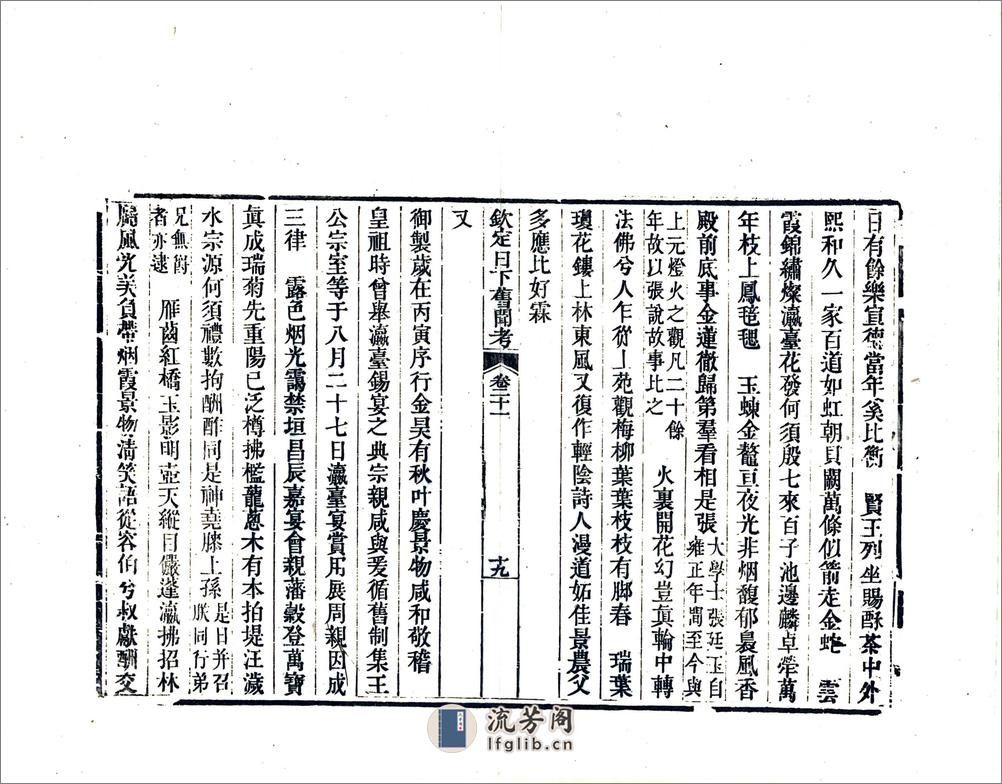 日有餘樂宣德當年奚比衡　賢王列坐賜酥茶中外
熙和久一家百道如虹朝貝闕萬條似箭走金蛇　雲
霞錦繡燦瀛臺花發何須殷七來百子池邊麟卓犖萬
年枝上鳳毰毸　玉蝀金鼇亘夜光非烟馥郁裊風香
殿前底事金蓮徹歸第羣看相是張大學士張廷玉自雍正年間至今與
上元燈火之觀凡二十餘年故以張說故事比之　火裏開花幻豈眞輪中轉
法佛兮人乍從上苑觀梅柳葉葉枝枝有脚春　瑞葉
瓊花鏤上林東風又復作輕陰詩人漫道妬佳景農父
多應比好霖
欽定日下舊聞考　卷二十一　十九
又
御製歲在丙寅序行金昊有秋叶慶景物咸和敬稽
皇祖時曾舉瀛臺錫宴之典宗親咸與爰循舊制集王
公宗室等于八月二十七日瀛臺宴賞用展周親因成
三律　露色烟光靄禁垣昌辰嘉宴會親藩穀登萬寶
眞成瑞菊先重陽已泛樽拂檻龍蔥木有本拍堤汪濊
水宗源何須禮數拘酬酢同是神堯膝上孫是日并召朕同行弟
兄無爵者亦逮　雁齒紅橋玉影明壺天縱目儼蓬瀛拂招林
屬風光美負帶烟霞景物清笑語從容伯兮叔獻酬交
流芳阁
lfglib.cn